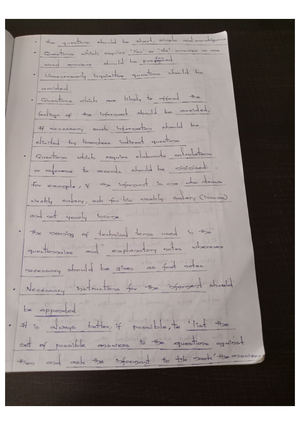 The questions should be short, simple and
Questions which require 'Yes' or 'No' answers or one
word answers should be preferred.
Unnecessarily inquisitive questions should be
avoided.
Questions which are likely to offend the
feelings of the informant should be avoided,
if necessary such information should be
elicited by indirect questions
Questions which require elaborate calculations
or reference to records should be
for example, if the informant is one who draws
weekly salary, ask for his weekly salary (income)
and not yearly income
The meaning of technical terms used in the
questionnaire and explanatory notes wherever
necessary should be given as foot notes.
Necessary instructions for the informant should
be appended
It is always better, if possible, to 'list the
set of possible answers to the questions against
them and ask the informant to tick mark the